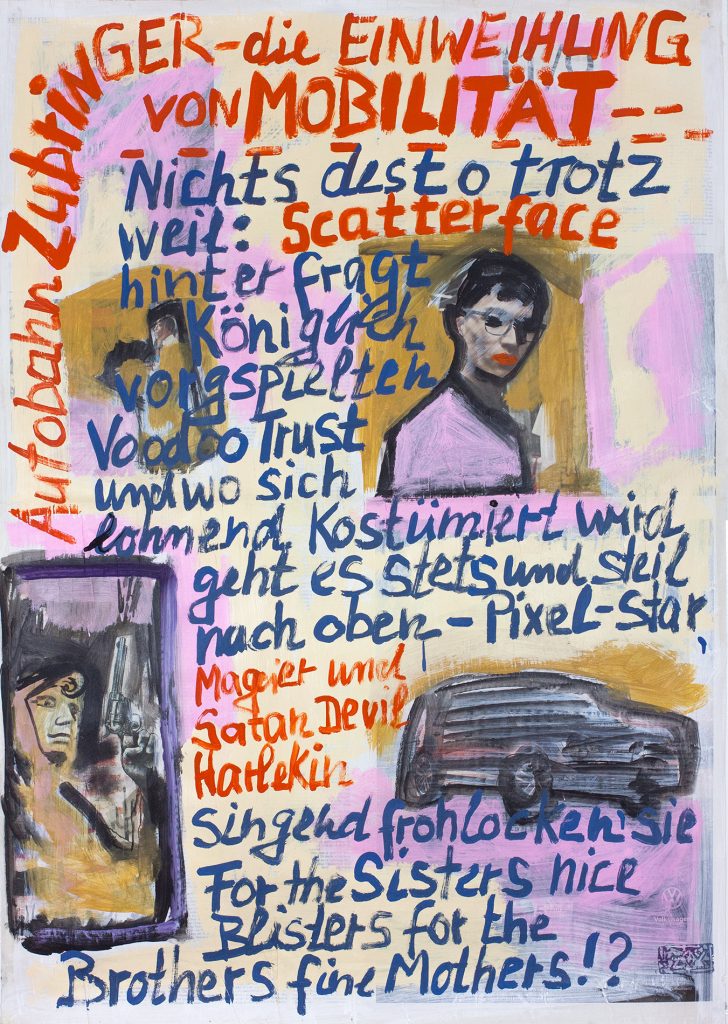 Autobahn ZubRiNGER-die EiNWEIHUNG
VON MOBILITÄT---
Nichts desto trotz
weil: Scatterface
hinterfragt
Königlich
vorgspielten
Voodoo Trust
und wo sich
lohnend Kostümiert wird
geht es stets und steil
nach oben - Pixel-Star,
Magier und
Satan Devil
Harlekin
singend frohlocken sie
For the Sisters nice
Blisters for the
Brothers fine Mothers!?
Volkswagen